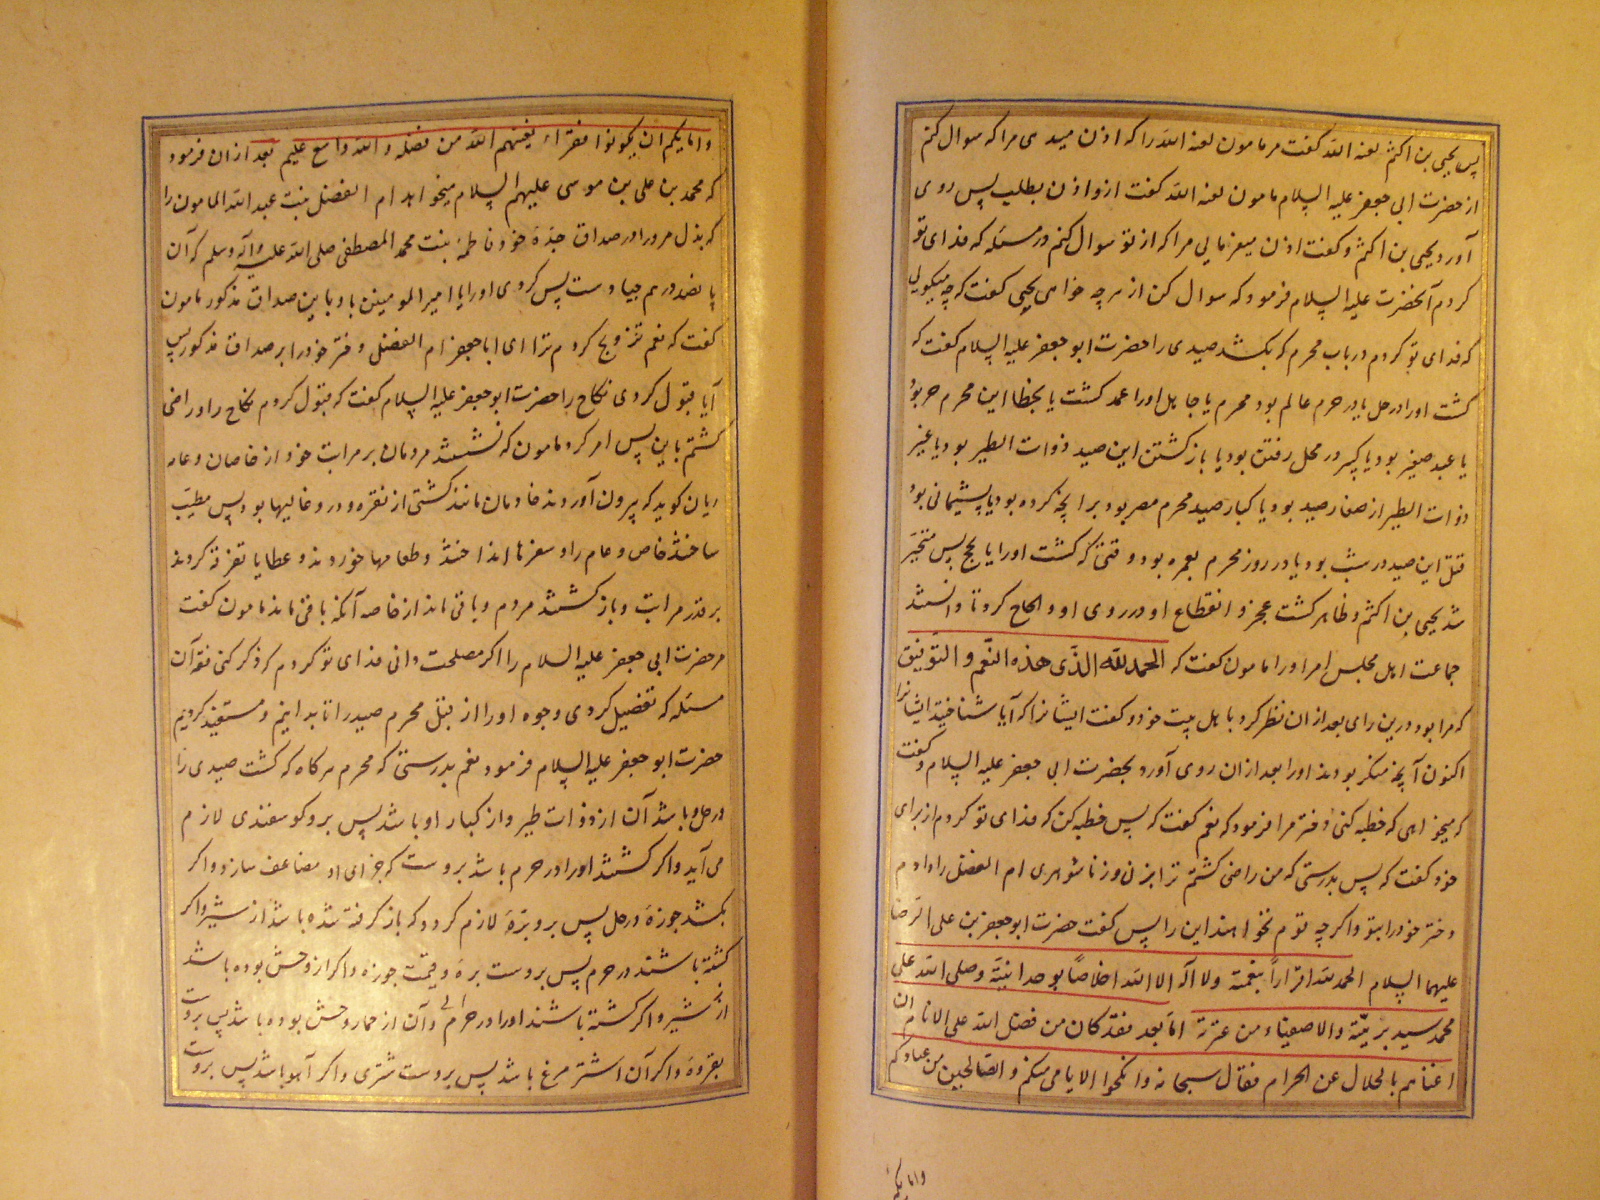 پس یحیی بن اکثم لعنه الله گفت مر مامون لعنه الله را که اذن میدی مرا که سوال کنم
از حضرت ابی جعفر علیه السلام مامون لعنه الله گفت ازو اذن بطلب پس روی
آورد یحیی بن اکثم و گفت اذن میفرمایی مرا که از تو سوال کنم در مسئله که فدای تو
کردم آنحضرت علیه السلام فرمود که سوال کن از هر چه خواهی یحیی گفت که چه میگویی
که فدای تو کردم در باب محرم که بکشد صیدی را حضرت ابو جعفر علیه السلام گفت که
کشت اورا در حل یا در حرم عالم بود محرم یا جاهل اورا عمد کشت یا بخطا این محرم حر بود
یا عبد صغیر بود یا کبیر در محل رفتن بود یا باز کشتن این صید ذوات الطیر بود یا غیر
ذوات الطیر از صغار صید بود یا کبار صید محرم مصر بود بر آنچه کرده بود یا پشیمانی بود
قتل این صید در شب بود یا در روز محرم بعمره بود وقتی که کشت اورا یا بحج پس متحیر
شد یحیی بن اکثم و ظاهر کشت عجز و انقطاع او در روی او و الحاح کرد تا دانستند
جماعت اهل مجلس امر اورا مامون گفت که الحمد لله الذی هذه النعم و التوفیق
که مرا بود درین رای بعد از ان نظر کرد با هل بیت خود و گفت ایشانرا که آیا شناختید ایشانرا
اکنون آنچه منکر بودند اورا بعد از ان روی آورد بحضرت ابی جعفر علیه السلام و گفت
که میخواهی که خطبه کنی دختر مرا فرمود که نعم گفت که پس خطبه کن که فدای تو کردم از برای
خود گفت که پس بدرستی که من راضی کشتم ترا بزن و زناشوهری ام الفضل را دادم
دختر خود را بتو و اکرچه قوم نخواهند این را پس گفت حضرت ابو جعفر بن علی الرضا
علیهما السلام الحمد لله اقراراً بنعمته ولا اله الا الله اخلاصاً بوحدانیته وصلی الله علی
محمد سید بریته والاصفیاء من عترته اما بعد فقد کان من فضل الله علی الانام ان
اغناهم بالحلال عن الحرام فقال سبحانه وانکحوا الایامی منکم و الصالحین من عبادکم
وامایکم
وامایکم ان یکونوا فقراء یغنیهم الله من فضله والله واسع علیم بعد از ان فرمود
که محمد بن علی بن موسی علیهم السلام میخواهد ام الفضل بنت عبد الله المامون را
که بذل مر اورا در صداق جدهٔ خود فاطمه بنت محمد المصطفی صلی الله علیه وآله وسلم که آن
پانصد درهم جیاد ست پس کردی اورا یا امیر المومنین باو باین صداق مذکور مامون
گفت که نعم تزویج کردم ترا ای ابا جعفر ام الفضل دختر خود را بر صداق مذکور پس
آیا قبول کردی نکاح را حضرت ابو جعفر علیه السلام گفت که قبول کردم نکاح را و راضی
کشتم باین پس امر کرد مامون که نشستند مردمان بر مراتب خود از خاصان و عام
ریان کوید که بیرون آوردند خادمان مانند کشتی از نقره و درو غالیها بود پس مطیب
ساختند خاص و عام را و سفرها انداختند و طعامها خوردند و عطایا تفرقه کردند
بر قدر مراتب و باز کشتند مردم و باقی ماند از خاصه آنکه باقی ماند مامون گفت
مر حضرت ابی جعفر علیه السلام را اکر مصلحت دانی فدای تو کردم که ذکر کنی فقه آن
مسئله که تفصیل کردی وجوه اورا از قتل محرم صید را تا بدانیم و مستفید کردیم
حضرت ابو جعفر علیه السلام فرمود نعم بدرستی که محرم هرکاه که کشت صیدی را
در حل و باشد آن از ذوات طیر و از کبار او باشد پس برو کوسفندی لازم
می آید و اکر کشتند اورا در حرم باشد بروست که جزای او مضاعف سازد و اکر
بکشد جوزهٔ در حل پس برو برهٔ لازم کردد که باز کرفته شده باشد از شیر و اکر
کشته باشند در حرم پس بروست بره و قیمت جوزه و اکر از وحش بوده باشد
از شیر و اکر کشته باشند اورا در حرم و آن از حمار وحش بوده باشد پس بروست
بقره و اکر آن اشتر مرغ باشد پس بروست شتری و اکر آهو باشد پس بروست